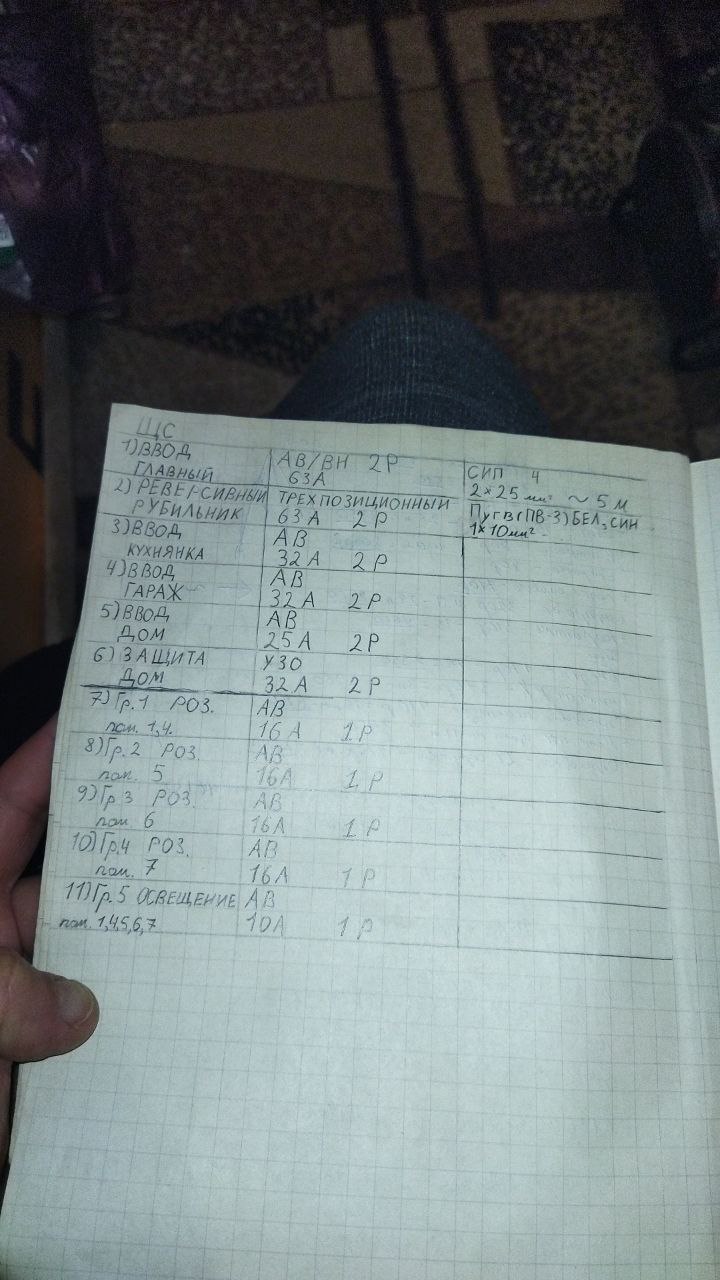 ЩС
1) ВВОД ГЛАВНЫЙ АВ/ВН 2Р 63А СИП 4 2×25 мм² ~ 5 м
2) РЕВЕРСИВНЫЙ РУБИЛЬНИК ТРЕХПОЗИЦИОННЫЙ 63А 2Р ПуГВ(ПВ-3) БЕЛ, СИН 1×10мм²
3) ВВОД КУХНЯНКА АВ 32А 2Р
4) ВВОД ГАРАЖ АВ 32А 2Р
5) ВВОД ДОМ АВ 25А 2Р
6) ЗАЩИТА ДОМ УЗО 32А 2Р
7) Гр.1 РОЗ. пом. 1,4. АВ 16А 1Р
8) Гр.2 РОЗ. пом. 5 АВ 16А 1Р
9) Гр 3 РОЗ. пом. 6 АВ 16А 1Р
10) Гр.4 РОЗ. пом. 7 АВ 16А 1Р
11) Гр.5 ОСВЕЩЕНИЕ пом. 1,4,5,6,7 АВ 10А 1Р